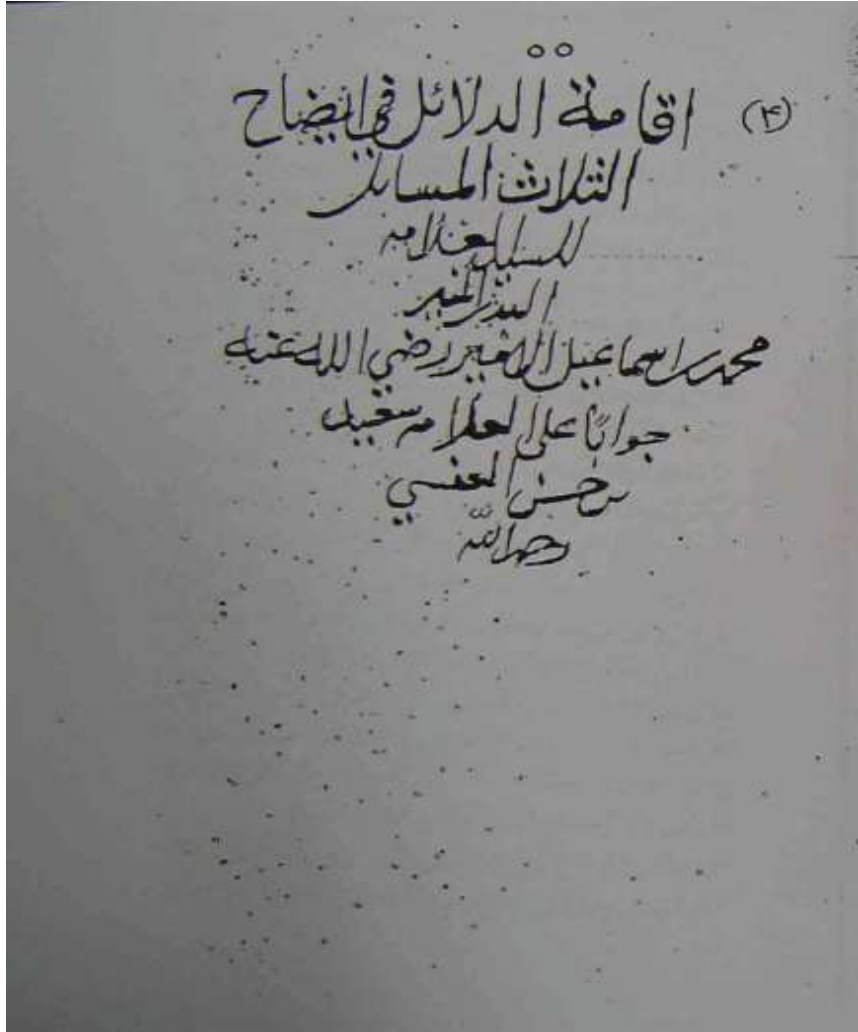 (٤) اقامة الدلائل في ايضاح
الثلاث المسائل
للسيد العلامه
البدر المنير
محمد بن اسماعيل الامير رضي الله عنه
جوابًا على العلامه سعيد
بن حسن العنسي
رحمه الله